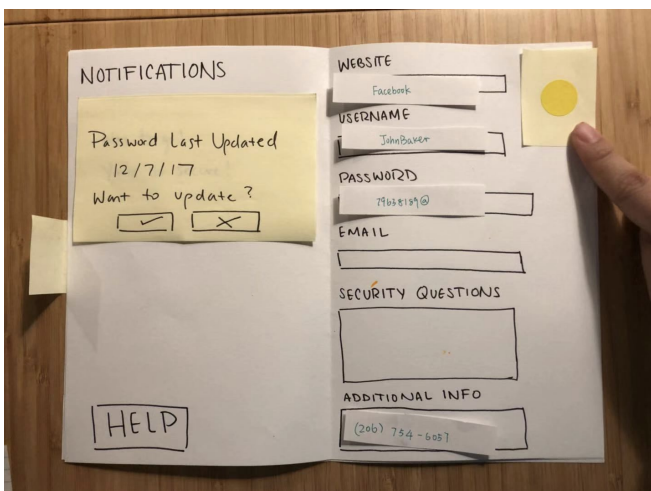 NOTIFICATIONS
Password Last Updated
12/7/17
Want to update?
HELP
WEBSITE
Facebook
USERNAME
JohnBaker
PASSWORD
79638189@
EMAIL
SECURITY QUESTIONS
ADDITIONAL INFO
(206) 734-6057